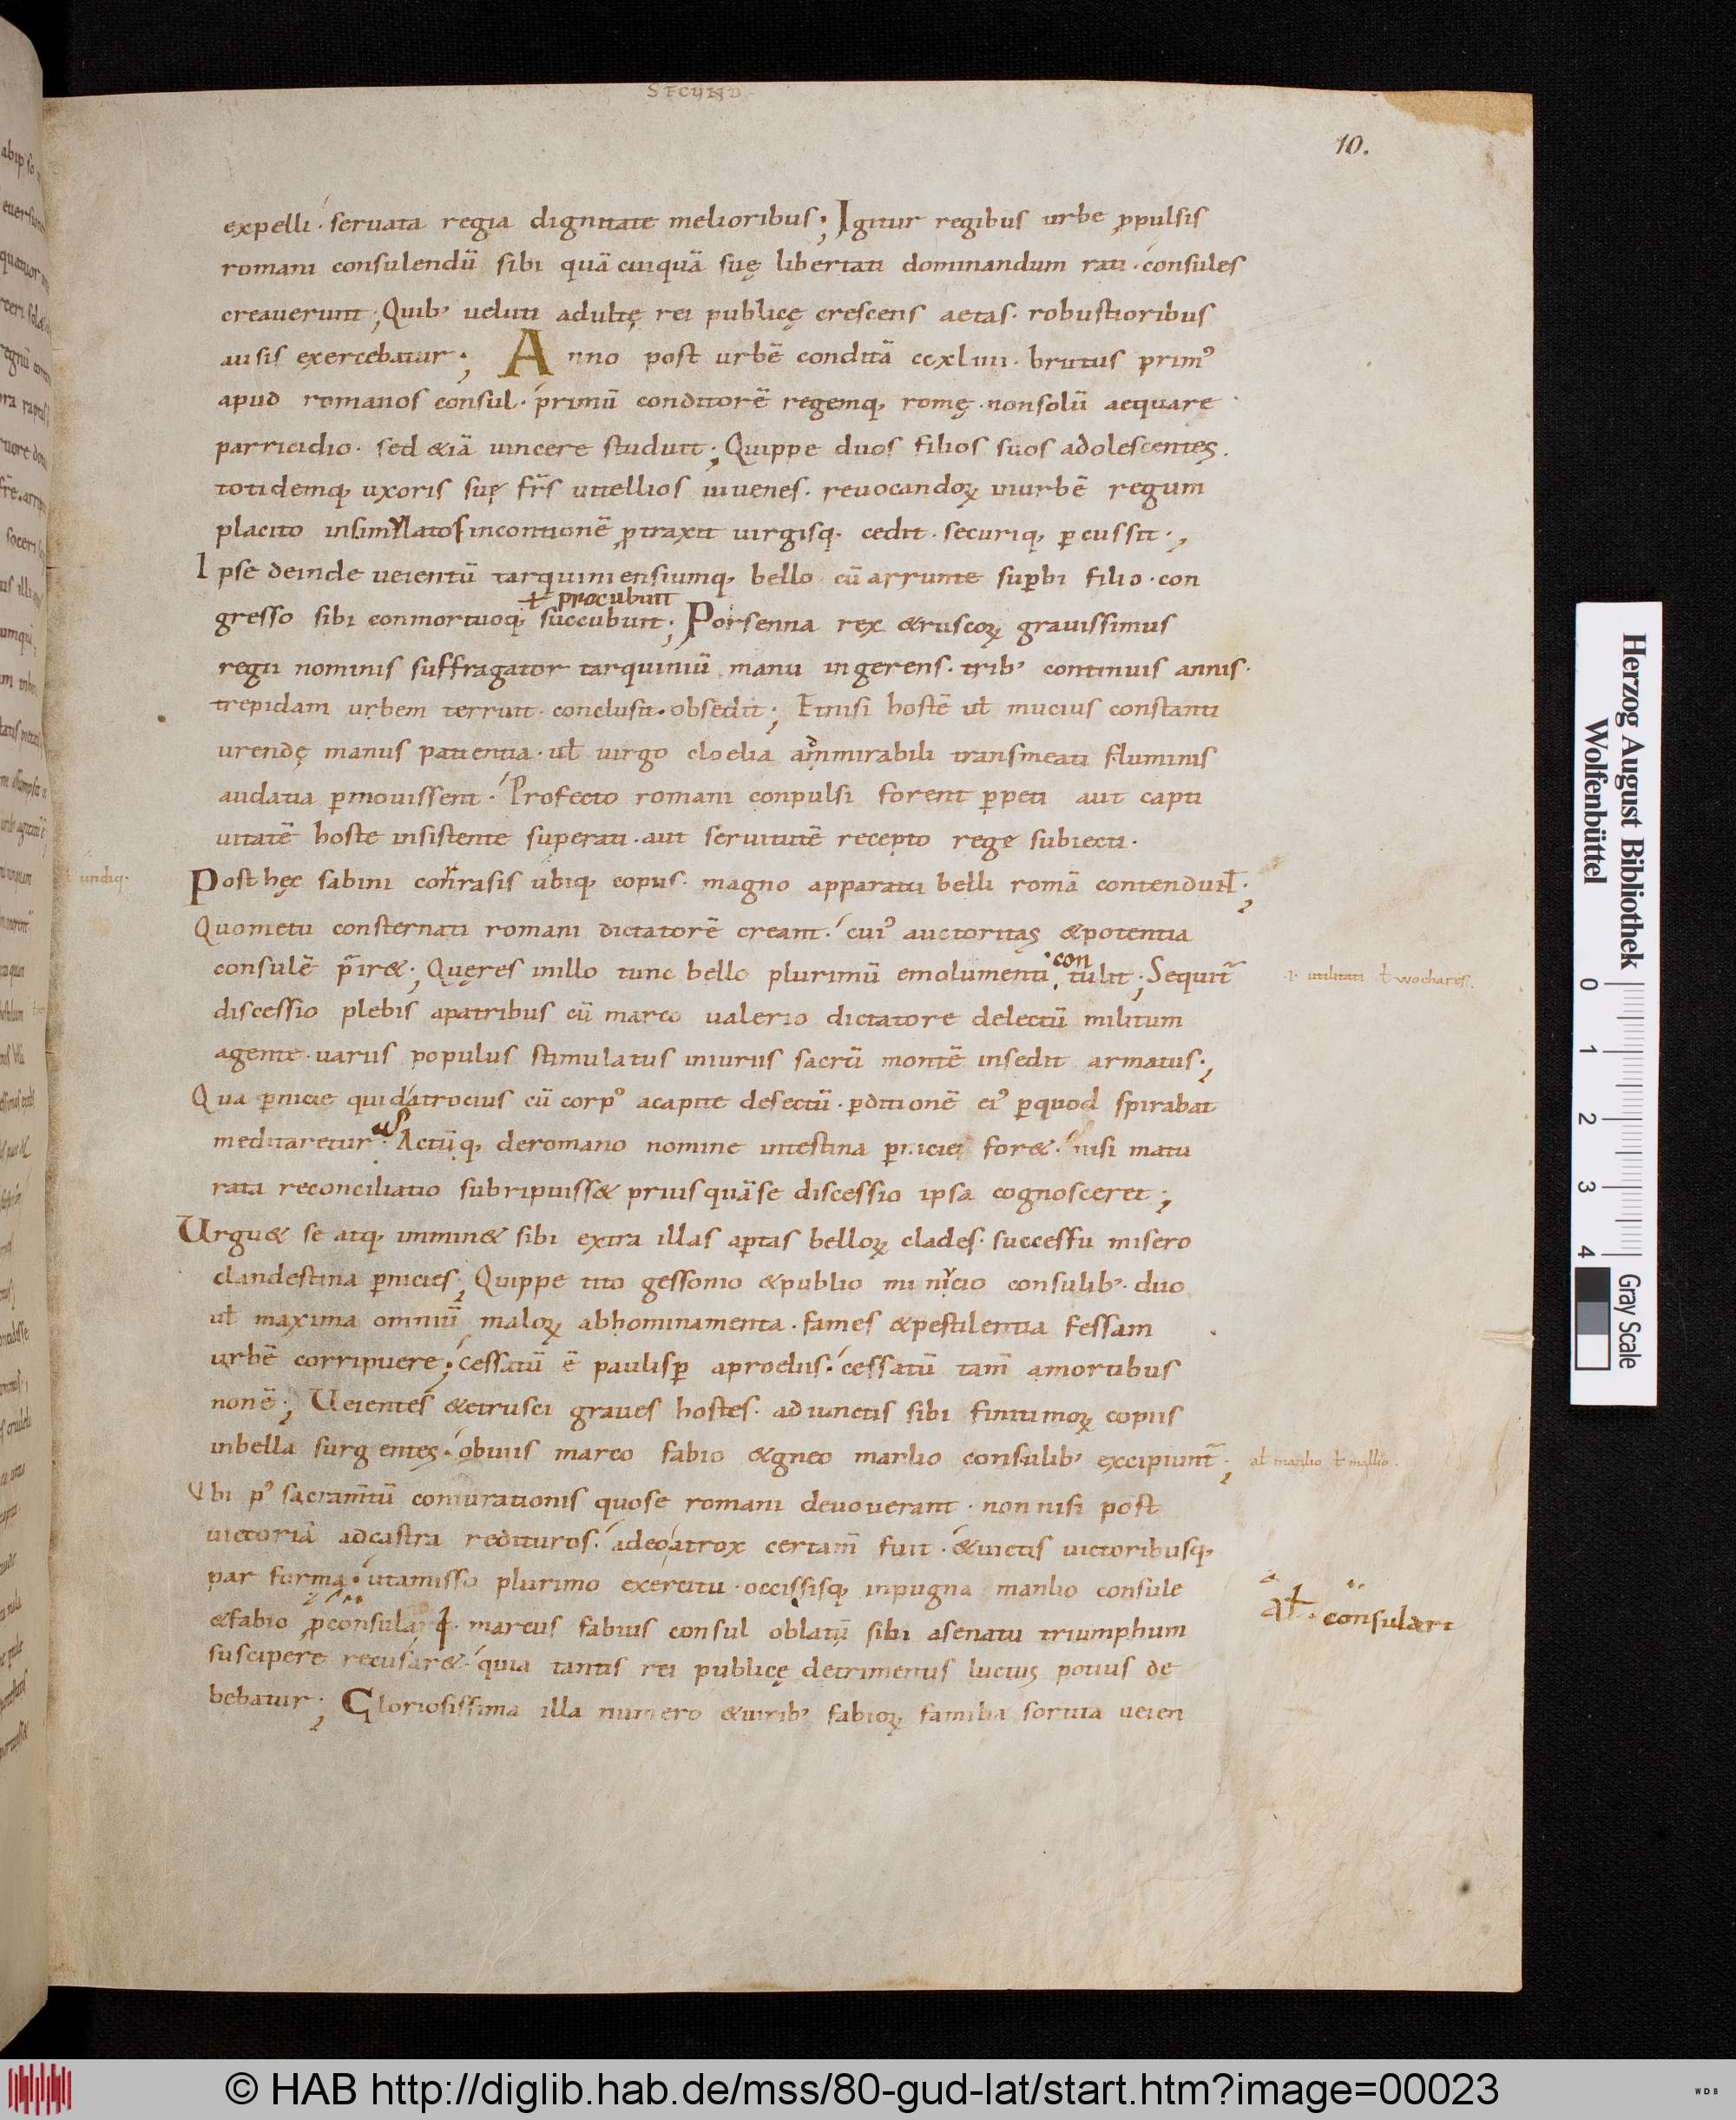 SECUND
10.
expelli · seruata regia dignitate melioribus; Igitur regibus urbe ꝓpulsis
romani consulendū sibi quā cuiquā suę libertati dominandum rati · consules
creauerunt; Quib; ueluti adultę rei publicę crescens aetas · robustioribus
ausis exercebatur; Anno post urbē conditā ccxliiii · brutus primꝰ
apud romanos consul · primū conditorē regemq; romę · nonsolū aequare
parricidio · sed &iā uincere studuit; Quippe duos filios suos adolescentes ·
totidemq; uxoris suę fr̄s uitellios iuuenes · reuocandoꝝ inurbē regum
placito insimulatos incontionē ꝓtraxit uirgisq; cedit · securiq; ꝑcussit;
Ipse deinde ueientū tarquiniensiumq; bello cū arrunte suꝑbi filio · con
ł procubuit
gresso sibi conmortuoq; succubuit; Porsenna rex &ruscoꝝ grauissimus
regii nominis suffragator tarquiniū manu ingerens · trib; continuis annis ·
trepidam urbem terruit · conclusit · obsedit; Etnisi hostē uł mucius constanti
urendę manus patientia · uł uirgo cloelia ammirabili transmeati fluminis
audatia ꝑmouissent · Profecto romani conpulsi forent ꝑpeti aut capti
uitatē hoste insistente superati · aut seruitutē recepto rege subiecti ·
ł undiq;
Posthęc sabini conrasis ubiq; copiis · magno apparatu belli romā contendunt;
Quometu consternati romani dictatorē creant · cuiꝰ auctoritas &potentia
consulē p̄ir&; Quęres inillo tunc bello plurimū emolumenti con tulit; Sequit̄
.i. utilitati ł wochares.
discessio plebis apatribus cū marco ualerio dictatore delectū militum
agente · uariis populus stimulatus iniuriis sacrū montē insedit armatus;
Qua ꝑnicie quid atrocius cū corpꝰ acapite desectū · ꝑditionē eiꝰ ꝑquod spirabat
meditaretur Actūq; deromano nomine intestina ꝑnicie for& · nisi matu
rata reconciliatio subripuiss& priusquāse discessio ipsa cognosceret;
Urgu& se atq; immin& sibi extra illas aꝑtas belloꝝ clades · successu misero
clandestina ꝑnicies; Quippe tito gessonio &publio minicio consulib; · duo
uł maxima omniū maloꝝ abhominamenta · fames &pestilentia fessam
urbē corripuere; Cessatū ē paulisꝑ aproeliis · cessatū tam̄ amortibus
nonē; Ueientes &etrusci graues hostes · adiunctis sibi finitimoꝝ copiis
inbella surgentes · obuiis marco fabio &gneo manlio consulib; excipiunt̄;
ał manlio ł mallio.
Ubi pꝰ sacram̄tū coniurationis quose romani deuouerant · nonnisi post
uictoriā adcastra redituros · adeo atrox certam̄ fuit · &uictis uictoribusq;
par forma · utamisso plurimo exercitu · occissisq; inpugna manlio consule
&fabio ꝓconsulari · marcus fabius consul oblatū sibi asenatu triumphum
ał · consulari
suscipere recusar& · quia tantis rei publicę detrimentis luctus potius de
bebatur; Gloriosissima illa numero &uirib; fabioꝝ familia sortita ueien
Herzog August Bibliothek
Wolfenbüttel
0 1 2 3 4
Gray Scale
© HAB http://diglib.hab.de/mss/80-gud-lat/start.htm?image=00023
WDB